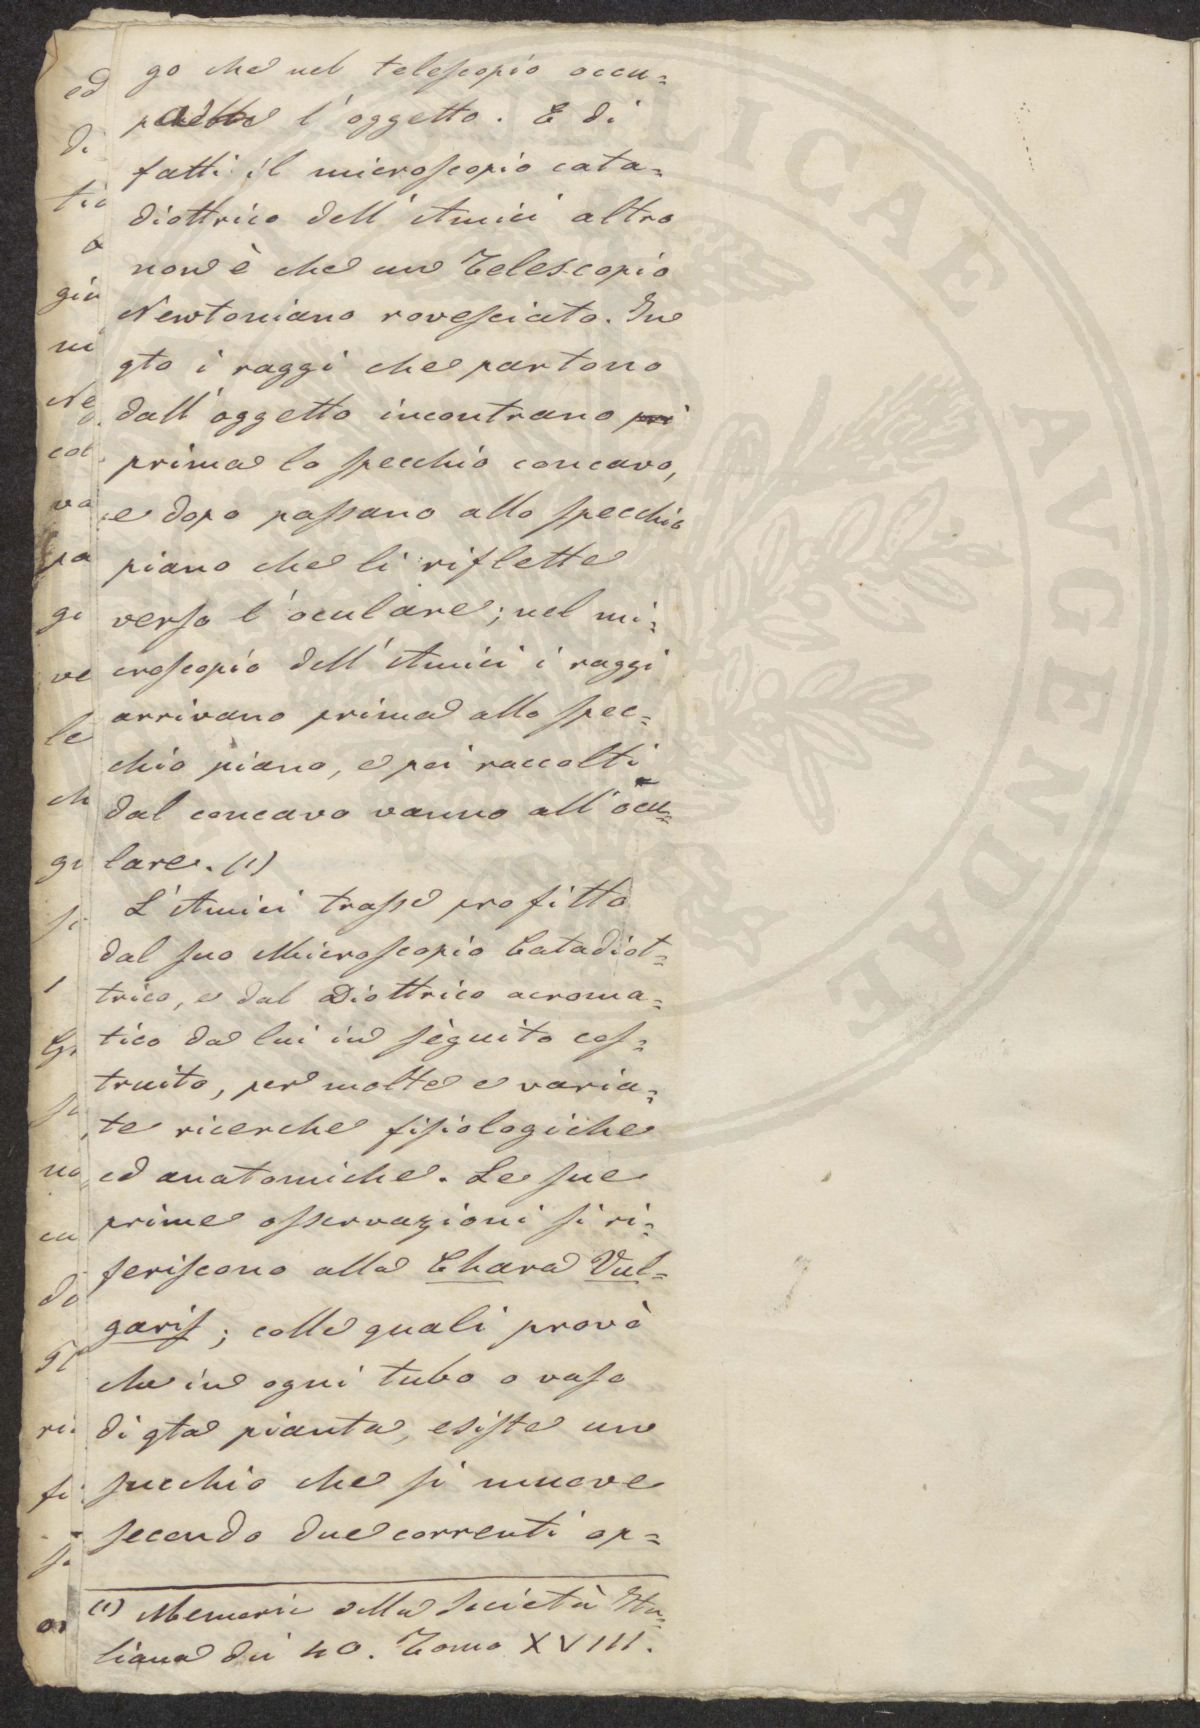 go che nel telescopio occu=
l'oggetto. E di
fatti il microscopio cata=
diottrico dell'Amici altro
non è che un Telescopio
Newtoniano rovesciato. In
qto i raggi che partono
dall'oggetto incontrano pri
prima lo specchio concavo,
e dopo passano allo specchio
piano che li riflette
verso l'oculare; nel mi=
croscopio dell'Amici i raggi
arrivano prima allo spec=
chio piano, e poi raccolti
dal concavo vanno all'ocu=
lare. (1)
L'Amici trasse profitto
dal suo Microscopio Catadiot=
trico, e dal Diottrico acroma=
tico da lui in sèguito cos=
truito, per molte e varia=
te ricerche fisiologiche
ed anatomiche. Le sue
prime osservazioni si ri=
feriscono alla Chara Vul=
garis; colle quali provò
che in ogni tubo o vaso
di qta pianta, esiste un
succhio che si muove
secondo due correnti op=
(1) Memorie della Società Ita=
liana dei 40. Tomo XVIII.
ed
di
tio
a
giu
ni
Ne
col
va
pa
gi
ve
le
ch
gi
si
no
cu
do
ri
fi
PVBLICAE AVGENDAE